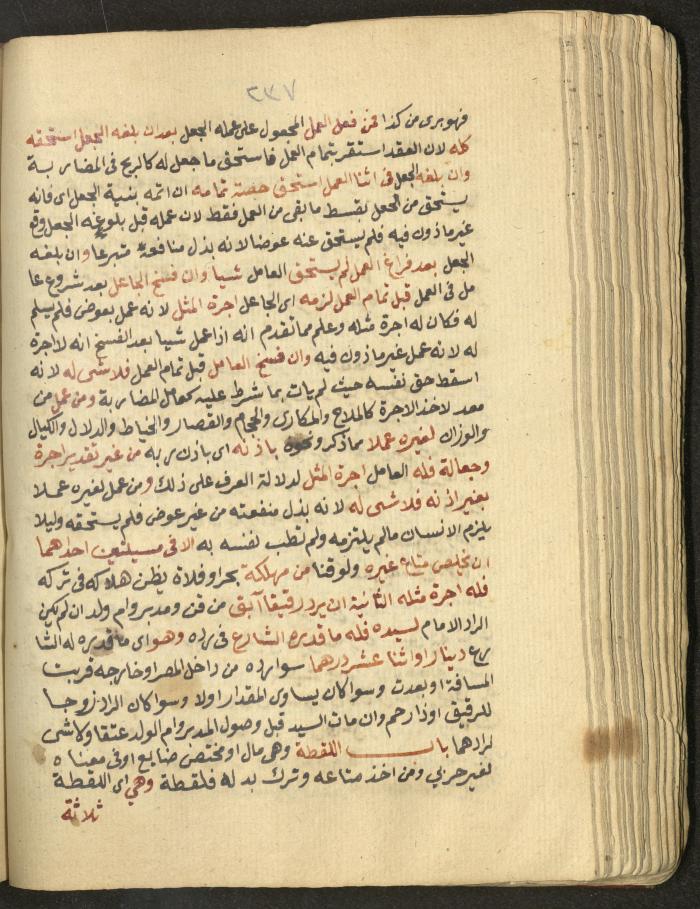 ٢٣٧
فهو برى من كذا فمن فعل العمل المجعول على عمله الجعل بعد ان بلغه الجعل استحقه
كله لان العقد استقر بتمام العمل فاستحق ما جعل له كالربح في المضاربة
وان بلغه الجعل في اثنا العمل استحق حصة تمامه ان اتمه بنية الجعل اى فانه
يستحق من الجعل بقسط ما بقى من العمل فقط لان عمله قبل بلوغه الجعل وقع
غير ماذون فيه فلم يستحق عنه عوضا لانه بذل منافعه متبرعا وان بلغه
الجعل بعد فراغ العمل لم يستحق العامل شيا وان فسخ الجاعل بعد شروع عا
مل فى العمل قبل تمام العمل لزمه اى الجاعل اجرة المثل لانه عمل بعوض فلم يسلم
له فكان له اجرة مثله وعلم مما تقدم انه اذا عمل شيا بعد الفسخ انه لا اجرة
له لانه عمل غير ماذون فيه وان فسخ العامل قبل تمام العمل فلا شى له لانه
اسقط حق نفسه حيث لم يات بما شرط عليه كعامل المضاربة ومن عمل من
معد لاخذ الاجرة كالملاح والمكارى والحجام والقصار والخياط والدلال والكيال
والوزان لغيره عملا مما ذكر ونحوه باذنه اى باذن ربه من غير تقدير اجرة
وجعالة فله العامل اجرة المثل لدلالة العرف على ذلك ومن عمل لغيره عملا
بغير اذنه فلا شى له لانه بذل منفعته من غير عوض فلم يستحقه وليلا
يلزم الانسان مالم يلتزمه ولم تطب نفسه به الا فى مسيلتين احداهما
ان يخلص متاع غيره ولو قنا من مهلكة بحر او فلاة يظن هلاكه فى تركه
فله اجرة مثله الثانية ان يرد رقيقا آبق من قن ومدبر وام ولد ان لم يكن
الراد الامام لسيده فله ما قدره الشارع فى رده وهو اى ما قدره له الشا
رع دينار او اثنا عشر درهما سوا رده من داخل المصر او خارجه قربت
المسافة او بعدت وسوا كان يساوى المقدار اولا وسوا كان الراد زوجا
للرقيق او ذا رحم وان مات السيد قبل وصول المدبر وام الولد عتقا ولا شى
لرادهما باب اللقطة وهى مال او مختص ضايع او فى معناه
لغير حربي ومن اخذ متاعه وترك بدله فلقطة وهي اى اللقطة
ثلاثة